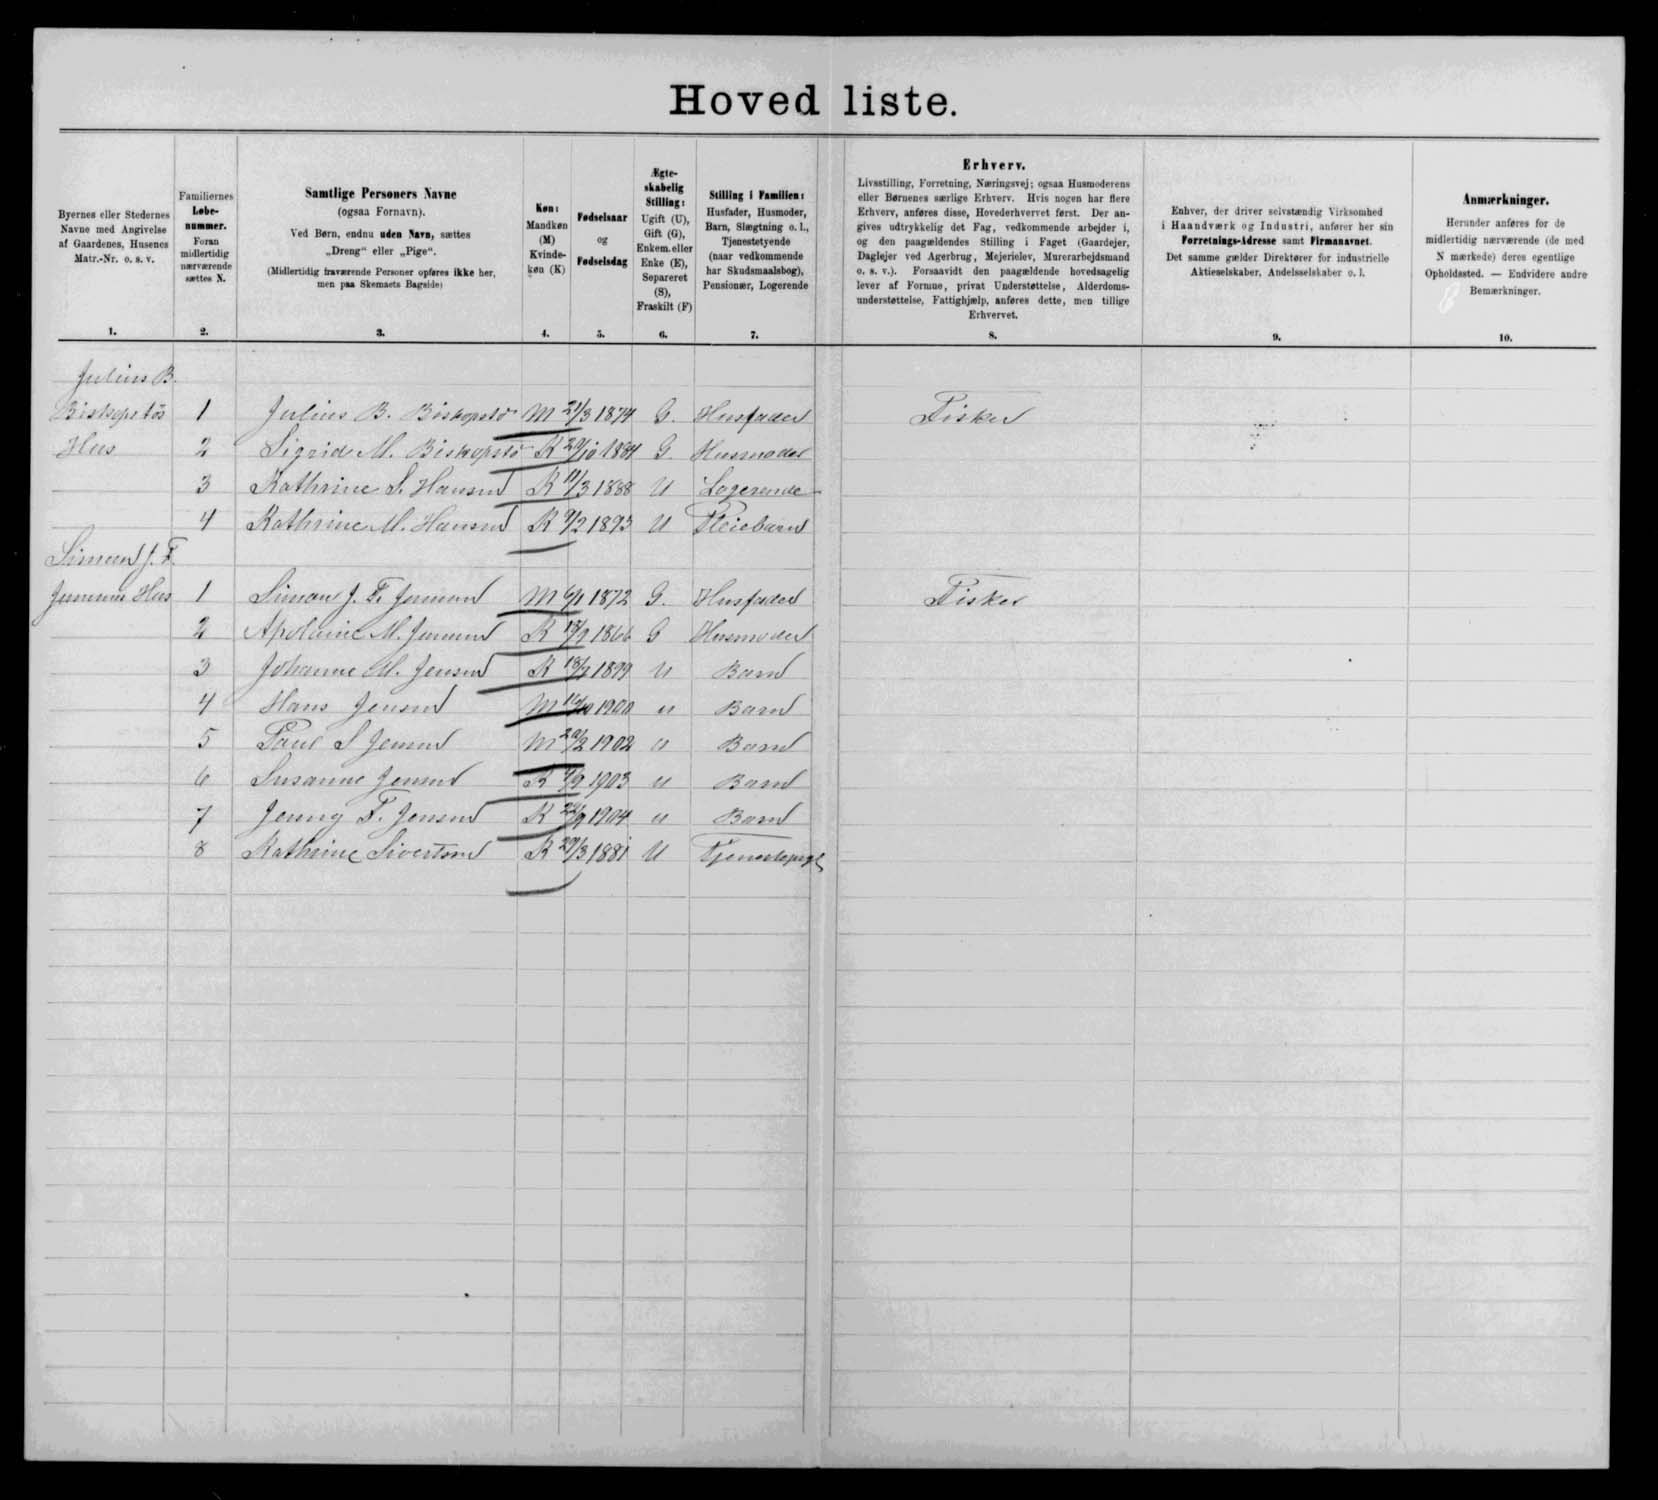 Hoved liste.
Byernes eller Stedernes
Navne med Angivelse
af Gaardenes, Husenes
Matr.-Nr. o. s. v.
1.
Familiernes
Løbe-
nummer.
Foran
midlertidig
nærværende
sættes N.
2.
Samtlige Personers Navne
(ogsaa Fornavn).
Ved Børn, endnu uden Navn, sættes
„Dreng“ eller „Pige“.
(Midlertidig fraværende Personer opføres ikke her,
men paa Skemaets Bagside)
3.
Køn:
Mandkøn
(M)
Kvinde-
køn (K)
4.
Fødselsaar
og
Fødselsdag
5.
Ægte-
skabelig
Stilling:
Ugift (U),
Gift (G),
Enkem. eller
Enke (E),
Separeret
(S),
Fraskilt (F)
6.
Stilling i Familien:
Husfader, Husmoder,
Barn, Slægtning o. l.,
Tjenestetyende
(naar vedkommende
har Skudsmaalsbog),
Pensionær, Logerende
7.
Erhverv.
Livsstilling, Forretning, Næringsvej; ogsaa Husmoderens
eller Børnenes særlige Erhverv. Hvis nogen har flere
Erhverv, anføres disse, Hovederhvervet først. Der an-
gives udtrykkelig det Fag, vedkommende arbejder i,
og den paagældendes Stilling i Faget (Gaardejer,
Daglejer ved Agerbrug, Mejerielev, Murerarbejdsmand
o. s. v.). Forsaavidt den paagældende hovedsagelig
lever af Formue, privat Understøttelse, Alderdoms-
understøttelse, Fattighjælp, anføres dette, men tillige
Erhvervet.
8.
Enhver, der driver selvstændig Virksomhed
i Haandværk og Industri, anfører her sin
Forretnings-Adresse samt Firmanavnet.
Det samme gælder Direktører for industrielle
Aktieselskaber, Andelsselskaber o. l.
9.
Anmærkninger.
Herunder anføres for de
midlertidig nærværende (de med
N mærkede) deres egentlige
Opholdssted. — Endvidere andre
Bemærkninger.
10.
Julius B.
Biskopstös 1 Julius B. Biskopstö M 21/3 1874 G. Husfader Fisker
Hus 2 Sigrid M. Biskopstö K 29/10 1884 G. Husmoder
3 Kathrine S. Hansen K 11/3 1888 U Logerende
4 Kathrine M. Hansen K 9/2 1893 U Pleiebarn
Simon J. F.
Jensens Hus 1 Simon J. F. Jensen M 6/1 1872 G. Husfader Fisker
2 M. Jensen K 1866 G Husmoder
3 Johanne M. Jensen K 1899 U Barn
4 Hans Jensen M 1900 u Barn
5 Paul S Jensen M 20/2 1902 u Barn
6 Susanne Jensen K 1903 u Barn
7 Jenny F. Jensen K 1904 u Barn
8 Kathrine Sivertsen K 29/3 1881 U Tjenestepige